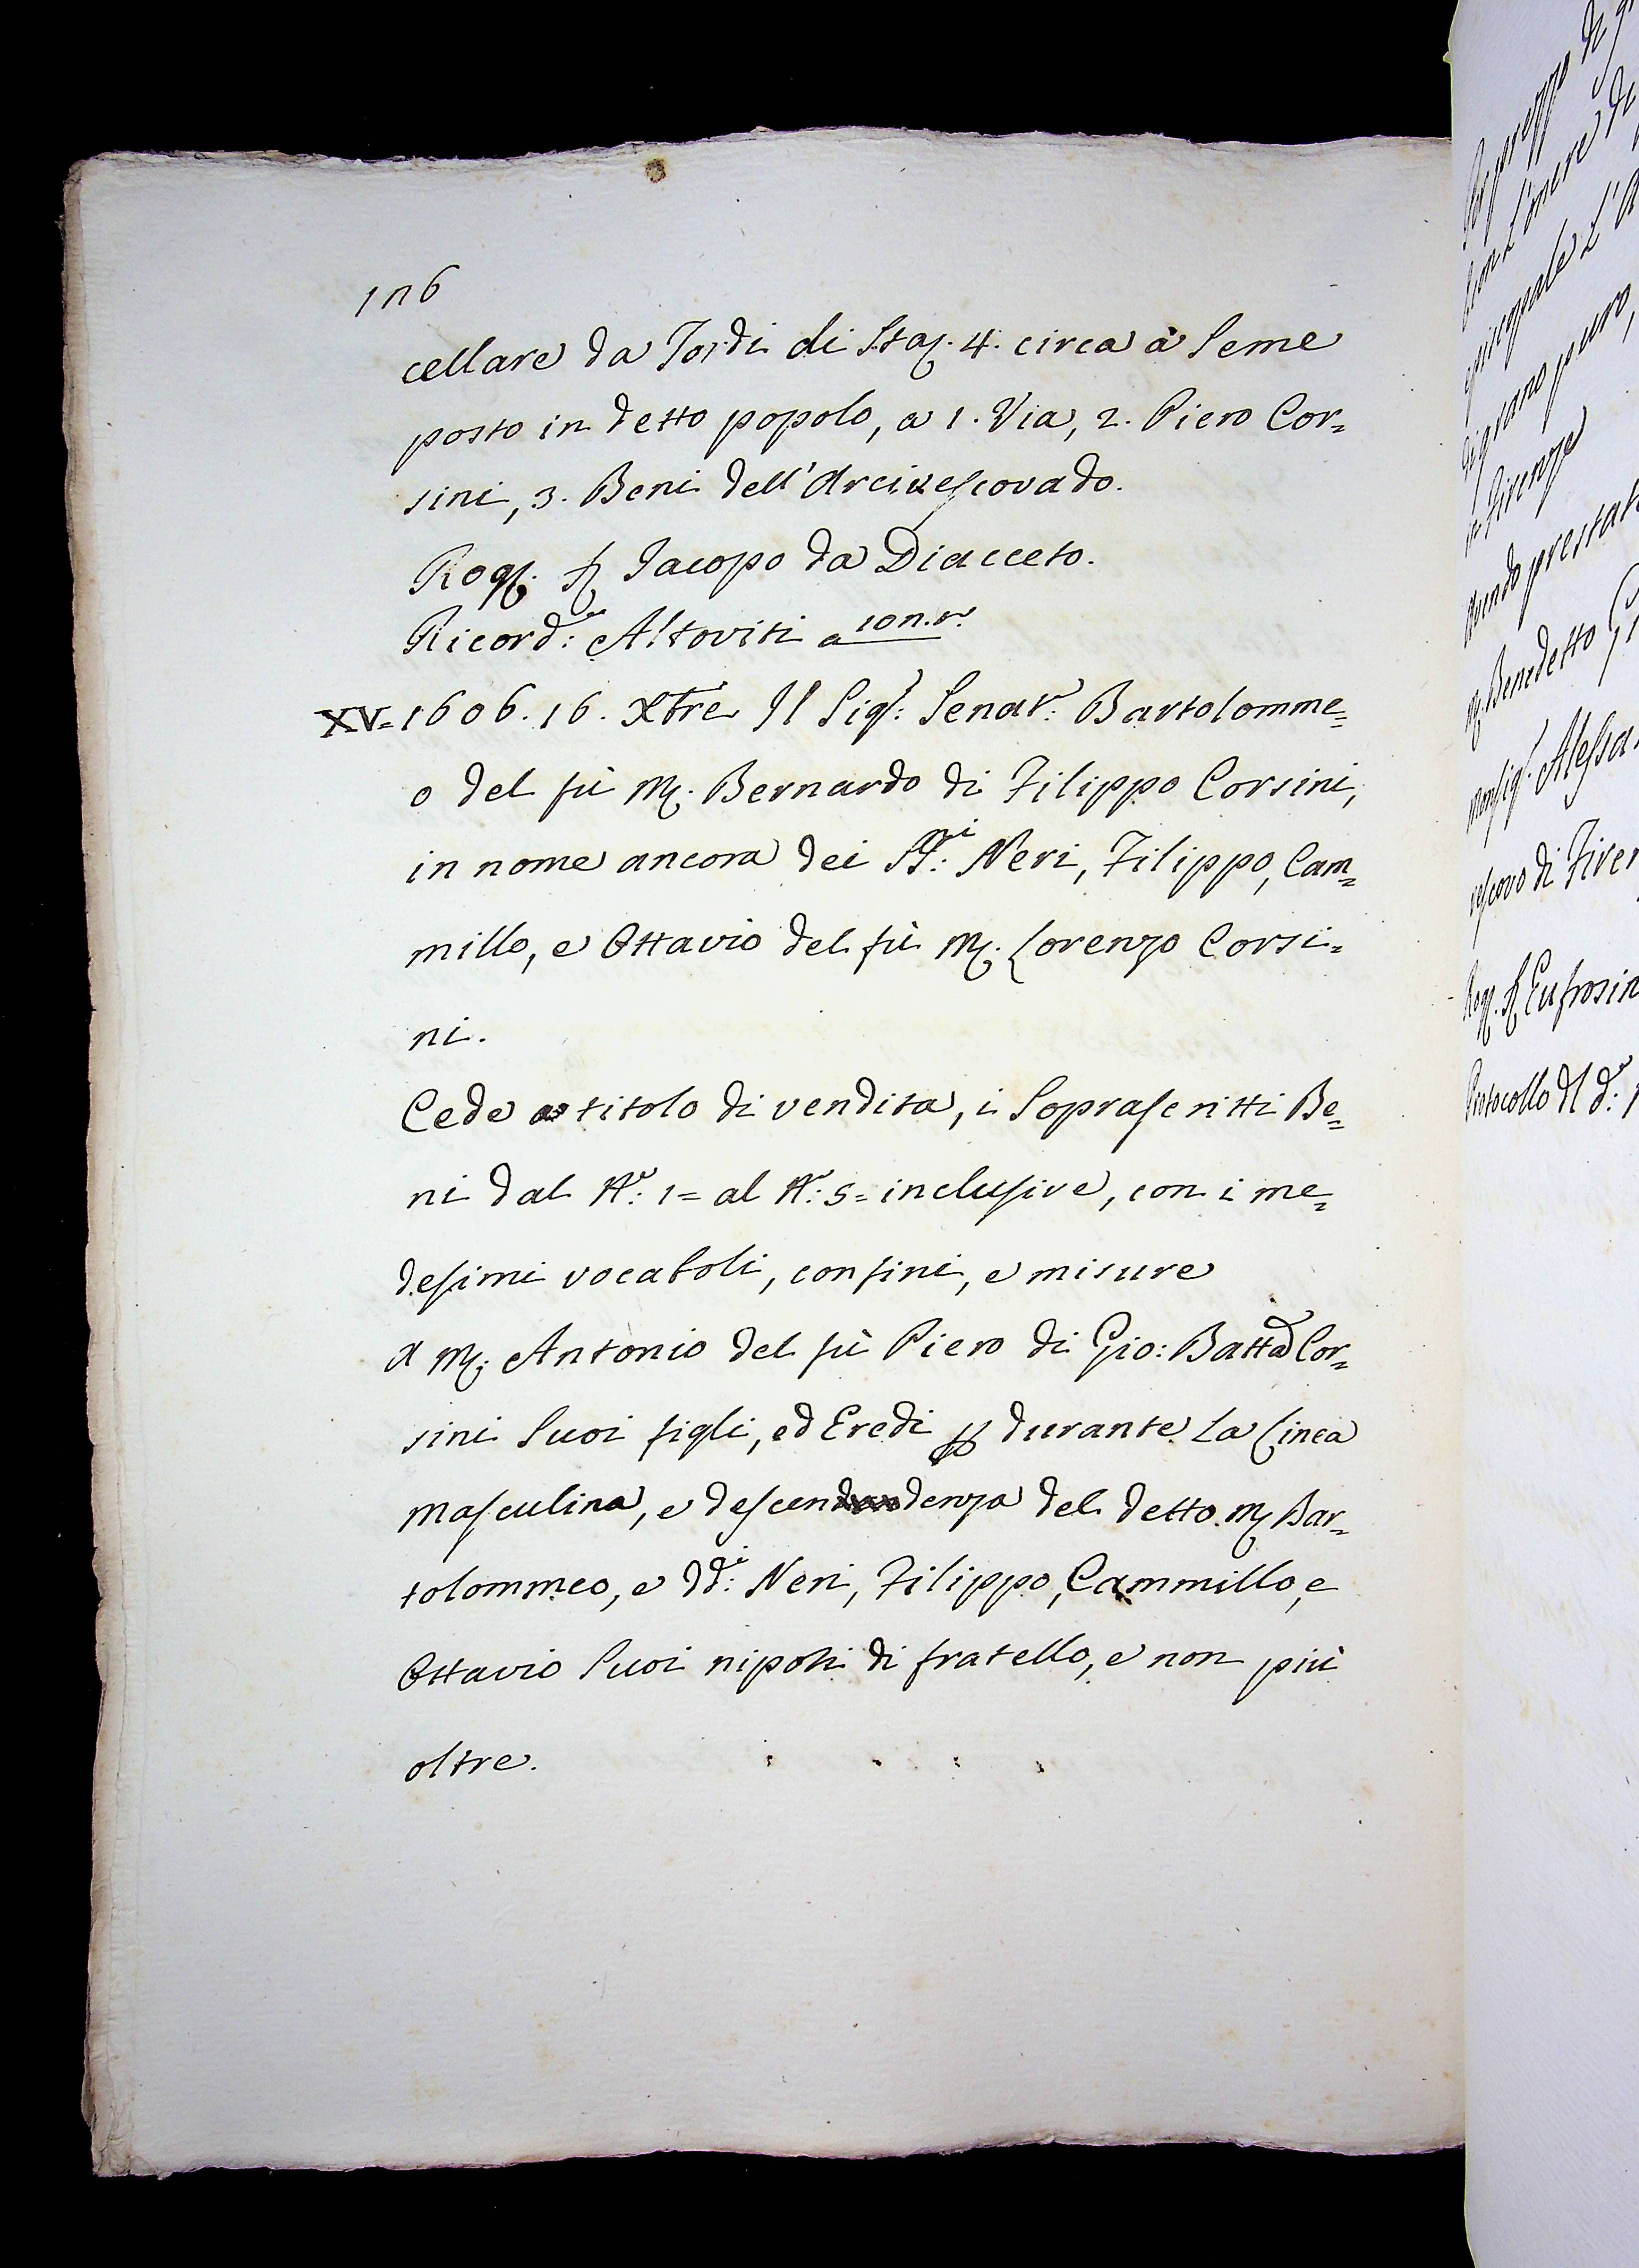 176
cellare da Tordi di Staq. 4. circa à Seme
posto in detto popolo, a 1. Via, 2. Piero Cor=
sini, 3. Beni dell'Arcivescovado.
Rog. Jacopo da Diacceto.
Ricord:e Altoviti a
XV= 1606. 16. Xbre Il Sig: Senat:r Bartolomme=
o del fù M. Bernardo di Filippo Corsini,
in nome ancora dei SS:ri Neri, Filippo, Cam=
millo, e Ottavio del fù M. Lorenzo Corsi=
ni.
Cede a titolo di vendita, i Soprascritti Be=
ni dal N:o 1= al N:o 5= inclusive, con i me=
desimi vocaboli, confini, e misure
A M. Antonio del fù Piero di Gio: Batta Cor=
sini Suoi figli, ed Eredi durante La Linea
Masculina, e descendenza del detto M. Bar=
tolommeo, e dd:i Neri, Filippo, Cammillo, e
Ottavio Suoi nipoti di fratello, e non più
oltre.
in Firenze
M. Benedetto
vescovo di Firen
Protocollo